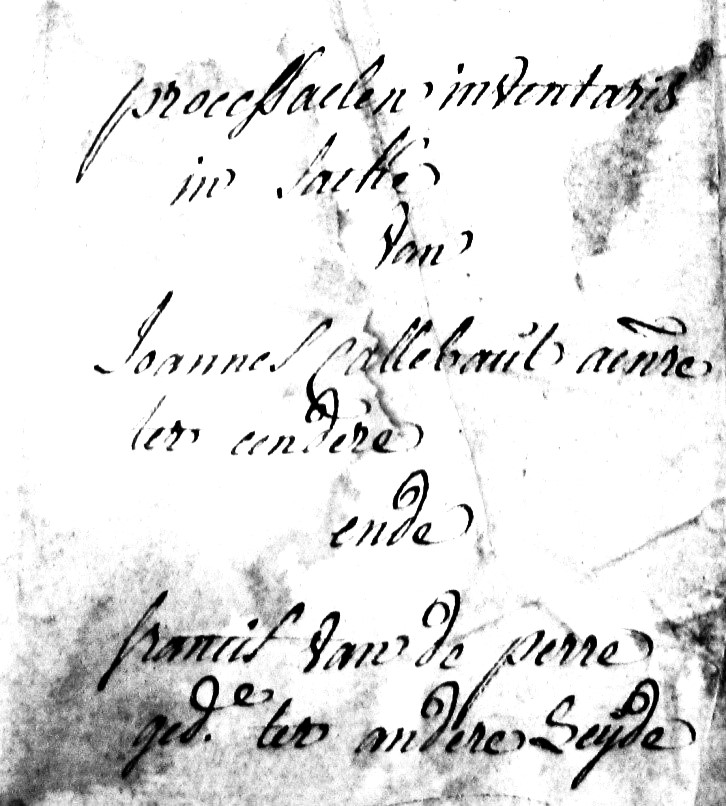 processaelen inventaris
in saeke
van
Joannes Callebaut aenre
ter eendere
ende
francis van de perre
ged.e ter andere Seyde